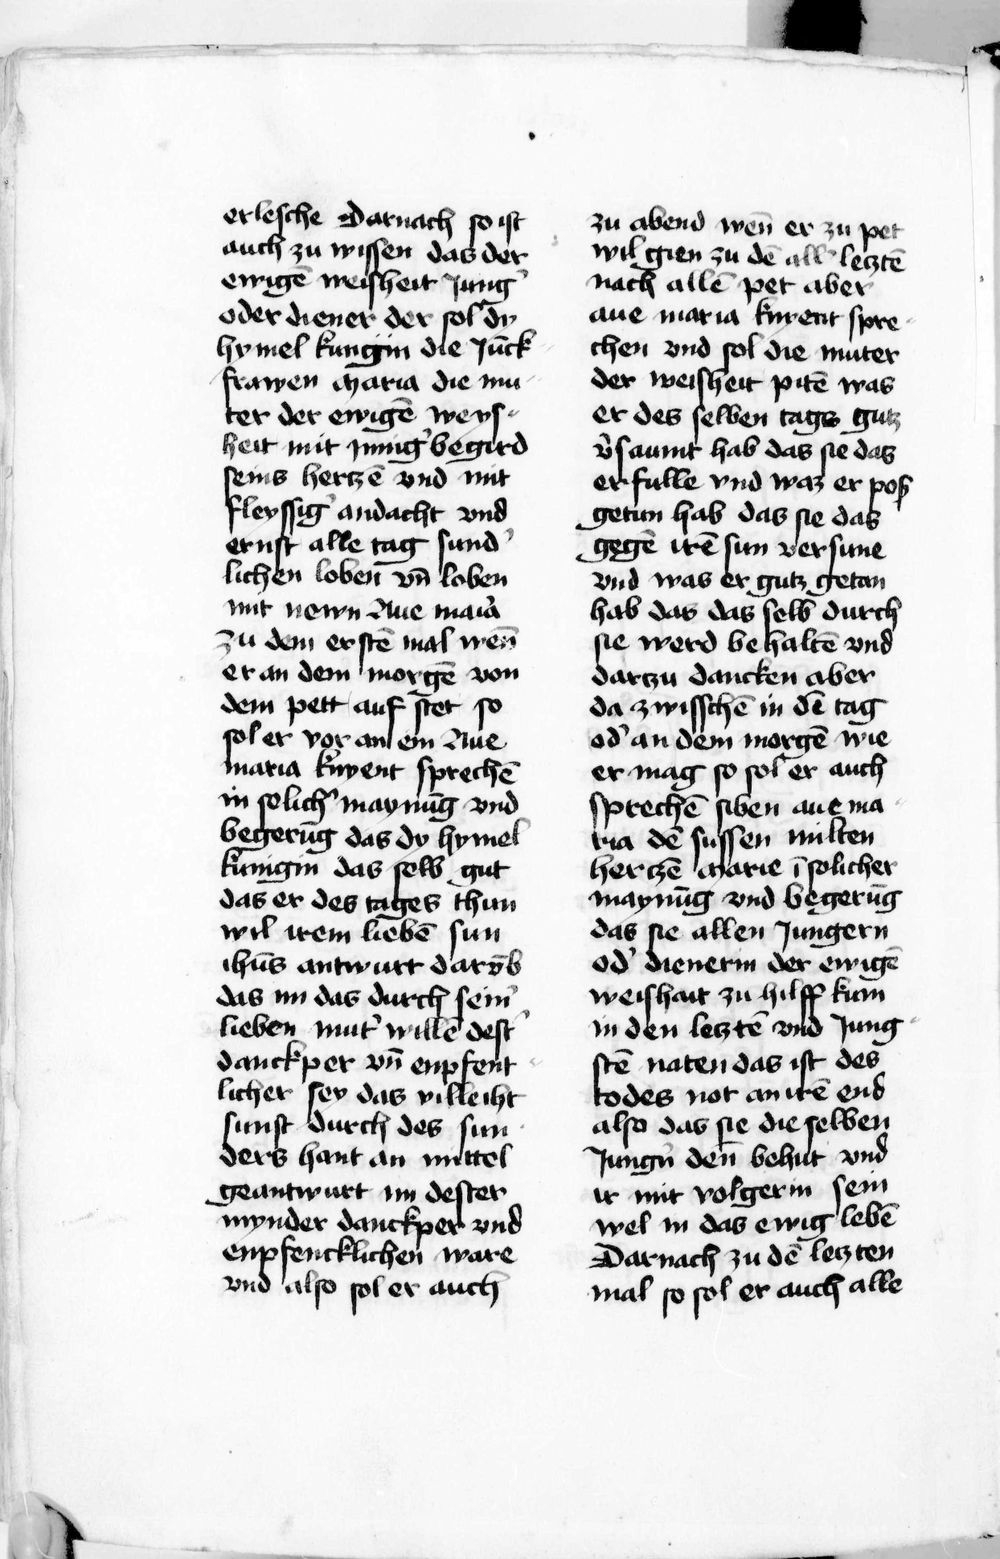 erlesche Darnach so ist
auch zu wissen das der
ewigē weisheit Jung᾿
oder diener der sol dy
hymel kungin die Jūck
frawen Maria die mu-
ter der ewigē weys-
heit mit ynnig᾿ begird
seins hertzē vnd mit
fleyssig᾿ andacht vnd
ernst alle tag sund᾿
lichen loben vn̄ loben
mit newn Aue mai᾿a
Zu dem erstē mal wen̄
er an dem morgē von
dem pett auf stet so
sol er vor an ein Aue
maria knyent sprechē
in solich᾿ maynūg vnd
begerūg das dy hymel
kunigin das selb gut
das er des tages thun
wil irem liebē sun
ihūs antwurt darv̄b
das im das durch sein᾿
lieben mut᾿ willē dest᾿
danckper vn̄ enpfent-
licher sey das villeiht
sunst durch des sun-
ders hant an mittel
geantwurt im dester
mynder danckper vnd
enpfencklichen ware
vnd also sol er auch
zu abend wen̄ er zu pet
wil gien zu dē all᾿ letztē
nach allē pet aber
aue maria knyent spre-
chen vnd sol die muter
der weisheit pitē was
er des selben tags gutz
v᾿saumt hab das sie das
erfulle vnd waz er poß
getun hab das sie das
gegē irē sun versune
vnd was er gutz getan
hab das das selb durch
sie werd behaltē vnd
dartzu dancken aber
da zwisschē in dē tag
od᾿ an dem morgē wie
er mag so sol er auch
sprechē siben aue ma-
ria dē sussen milten
hertzē Marie ī solicher
maynūg vnd begerūg
das sie allen Jungern
od᾿ dienerin der ewigē
weishait zu hilff kum
in den letztē vnd Jung-
stē naten das ist des
todes not an irē end
also das sie die selben
Jung᾿n den̄ behut vnd
ir mit volgerin sein
wel in das ewig lebē
Darnach zu dē letzten
mal so sol er auch alle